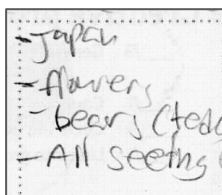 - Japan
- flowers
- bears (tedd
- All seeing